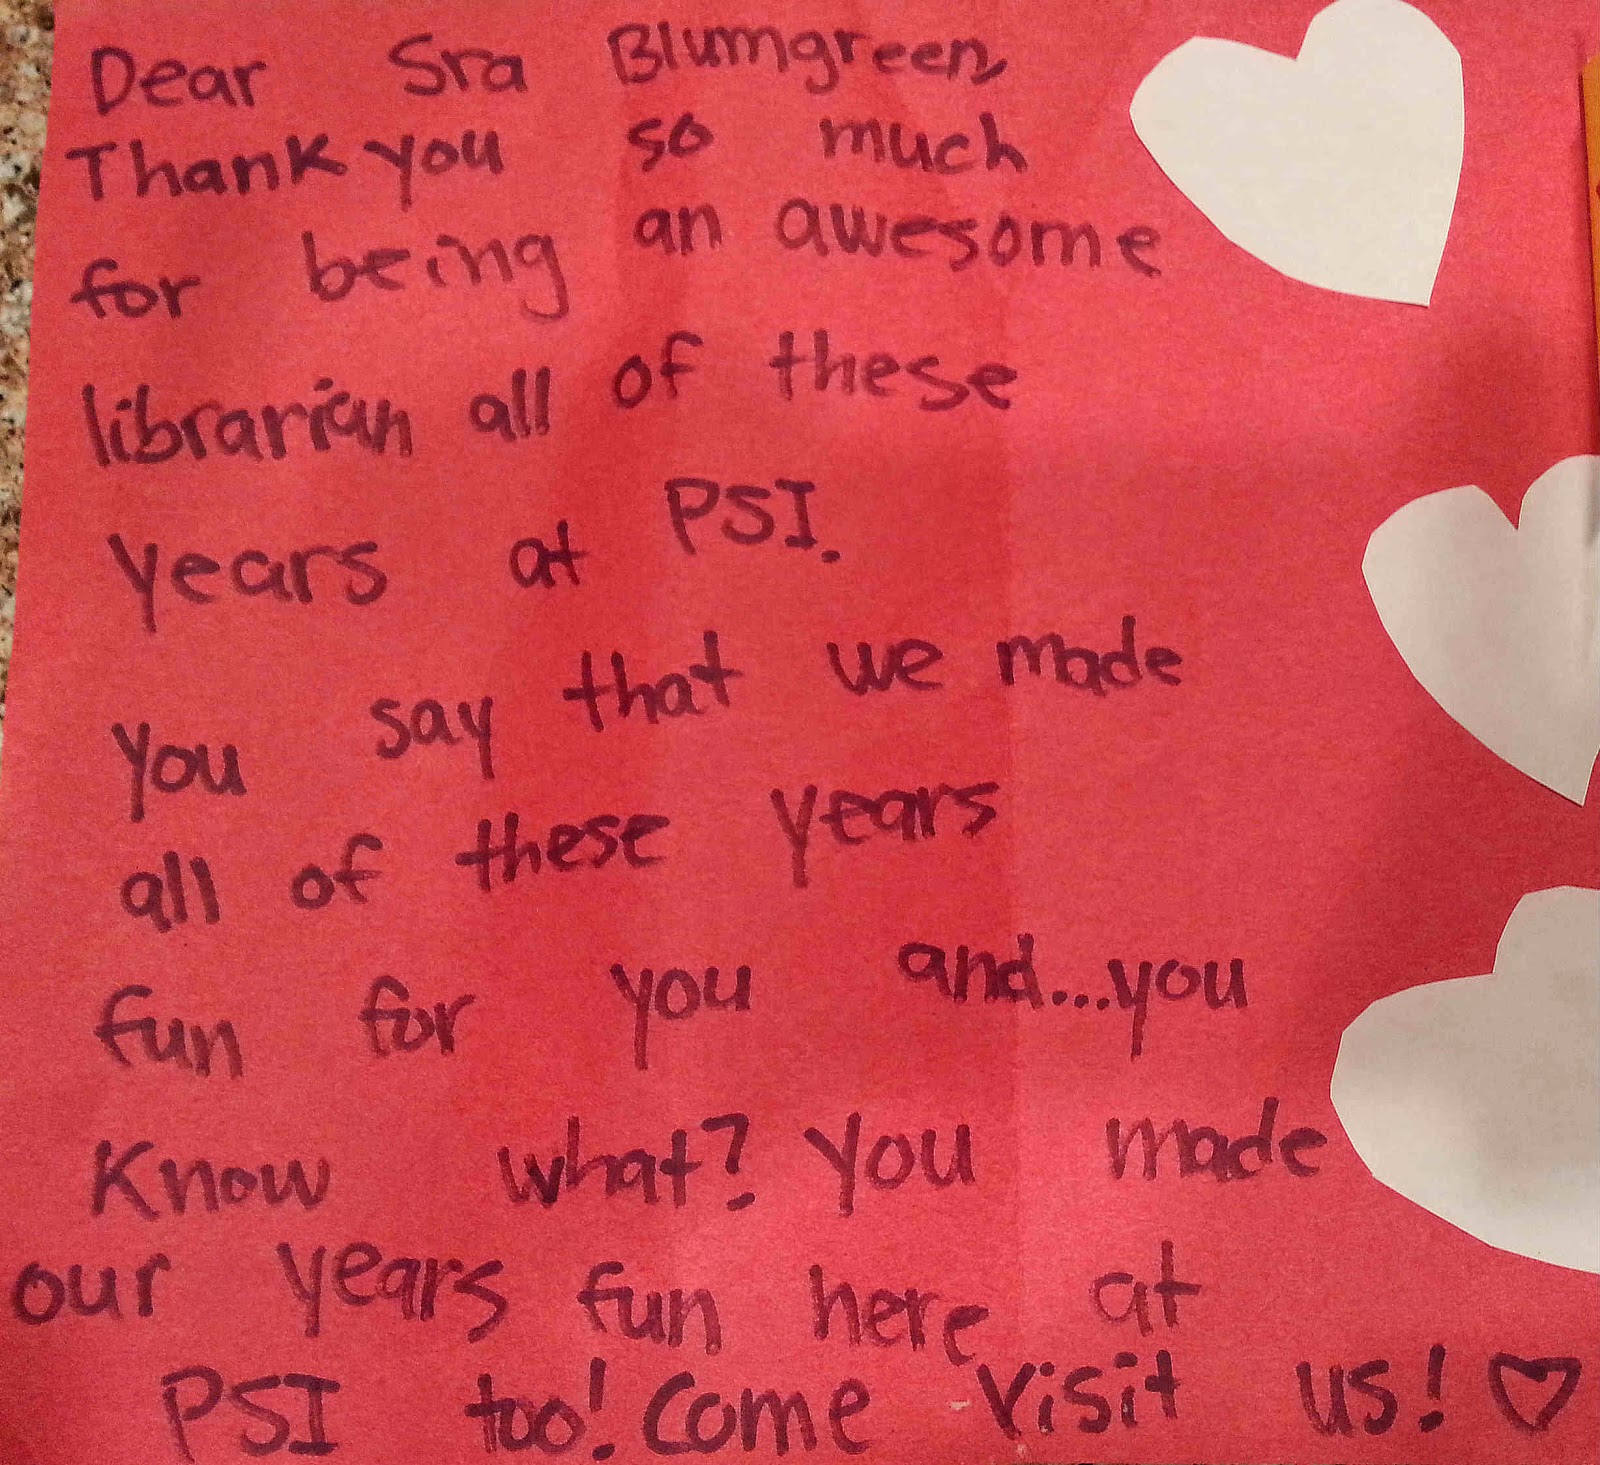 Dear Sra Blumgreen,
Thank you so much
for being an awesome
librarian all of these
years at PSI.
you say that we made
all of these years
fun for you and...you
Know what? you made
our years fun here at
PSI too! Come visit us! ♡